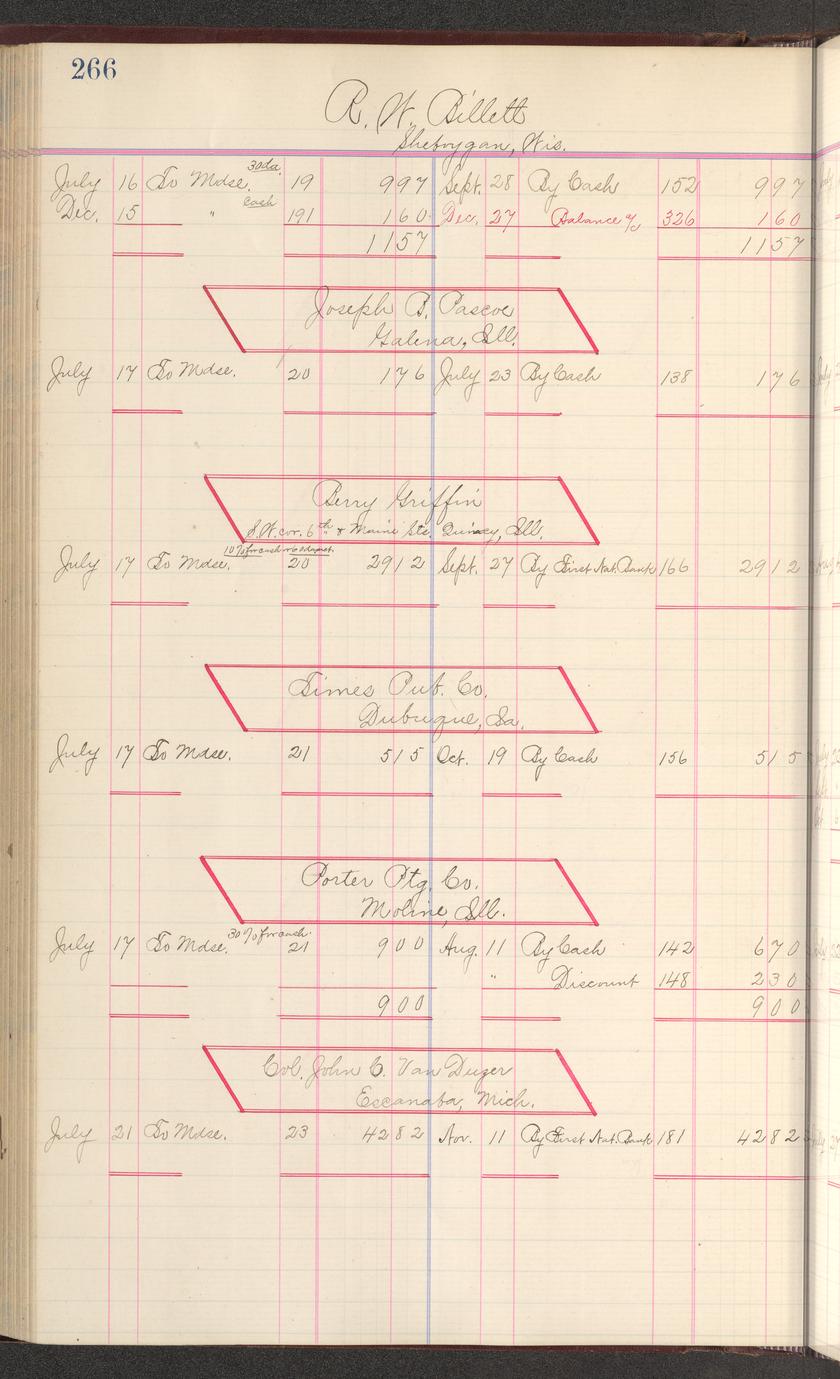 266
R. W. Billett
Sheboygan, Wis.
July 16 To Mdse. 30 da. 19 997 Sept. 28 By Cash 152 997
Dec. 15 " cash 191 160 Dec. 27 Balance a/c 326 160
1157 1157
Joseph B. Pascoe
Galena, Ill.
July 17 To Mdse. 20 176 July 23 By Cash 138 176
Berry Griffin
S.W. cor. 6th & Maine Sts. Quincy, Ill.
July 17 To Mdse. 10% for cash or 60 days net. 20 2912 Sept. 27 By First Nat. Bank 166 2912
Times Pub. Co.
Dubuque, Ia.
July 17 To Mdse. 21 515 Oct. 19 By Cash 156 515
Porter Ptg. Co.
Moline, Ill.
July 17 To Mdse. 30% for cash. 21 900 Aug. 11 By Cash 142 670
" Discount 148 230
900 900
Col. John C. Van Duzer
Escanaba, Mich.
July 21 To Mdse. 23 4282 Nov. 11 By First Nat. Bank 181 4282